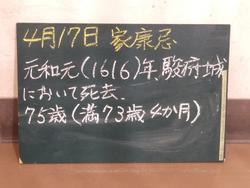 4月17日 家康忌
元和元(1616)年駿府城
において死去.
75歳(満73歳4か月)